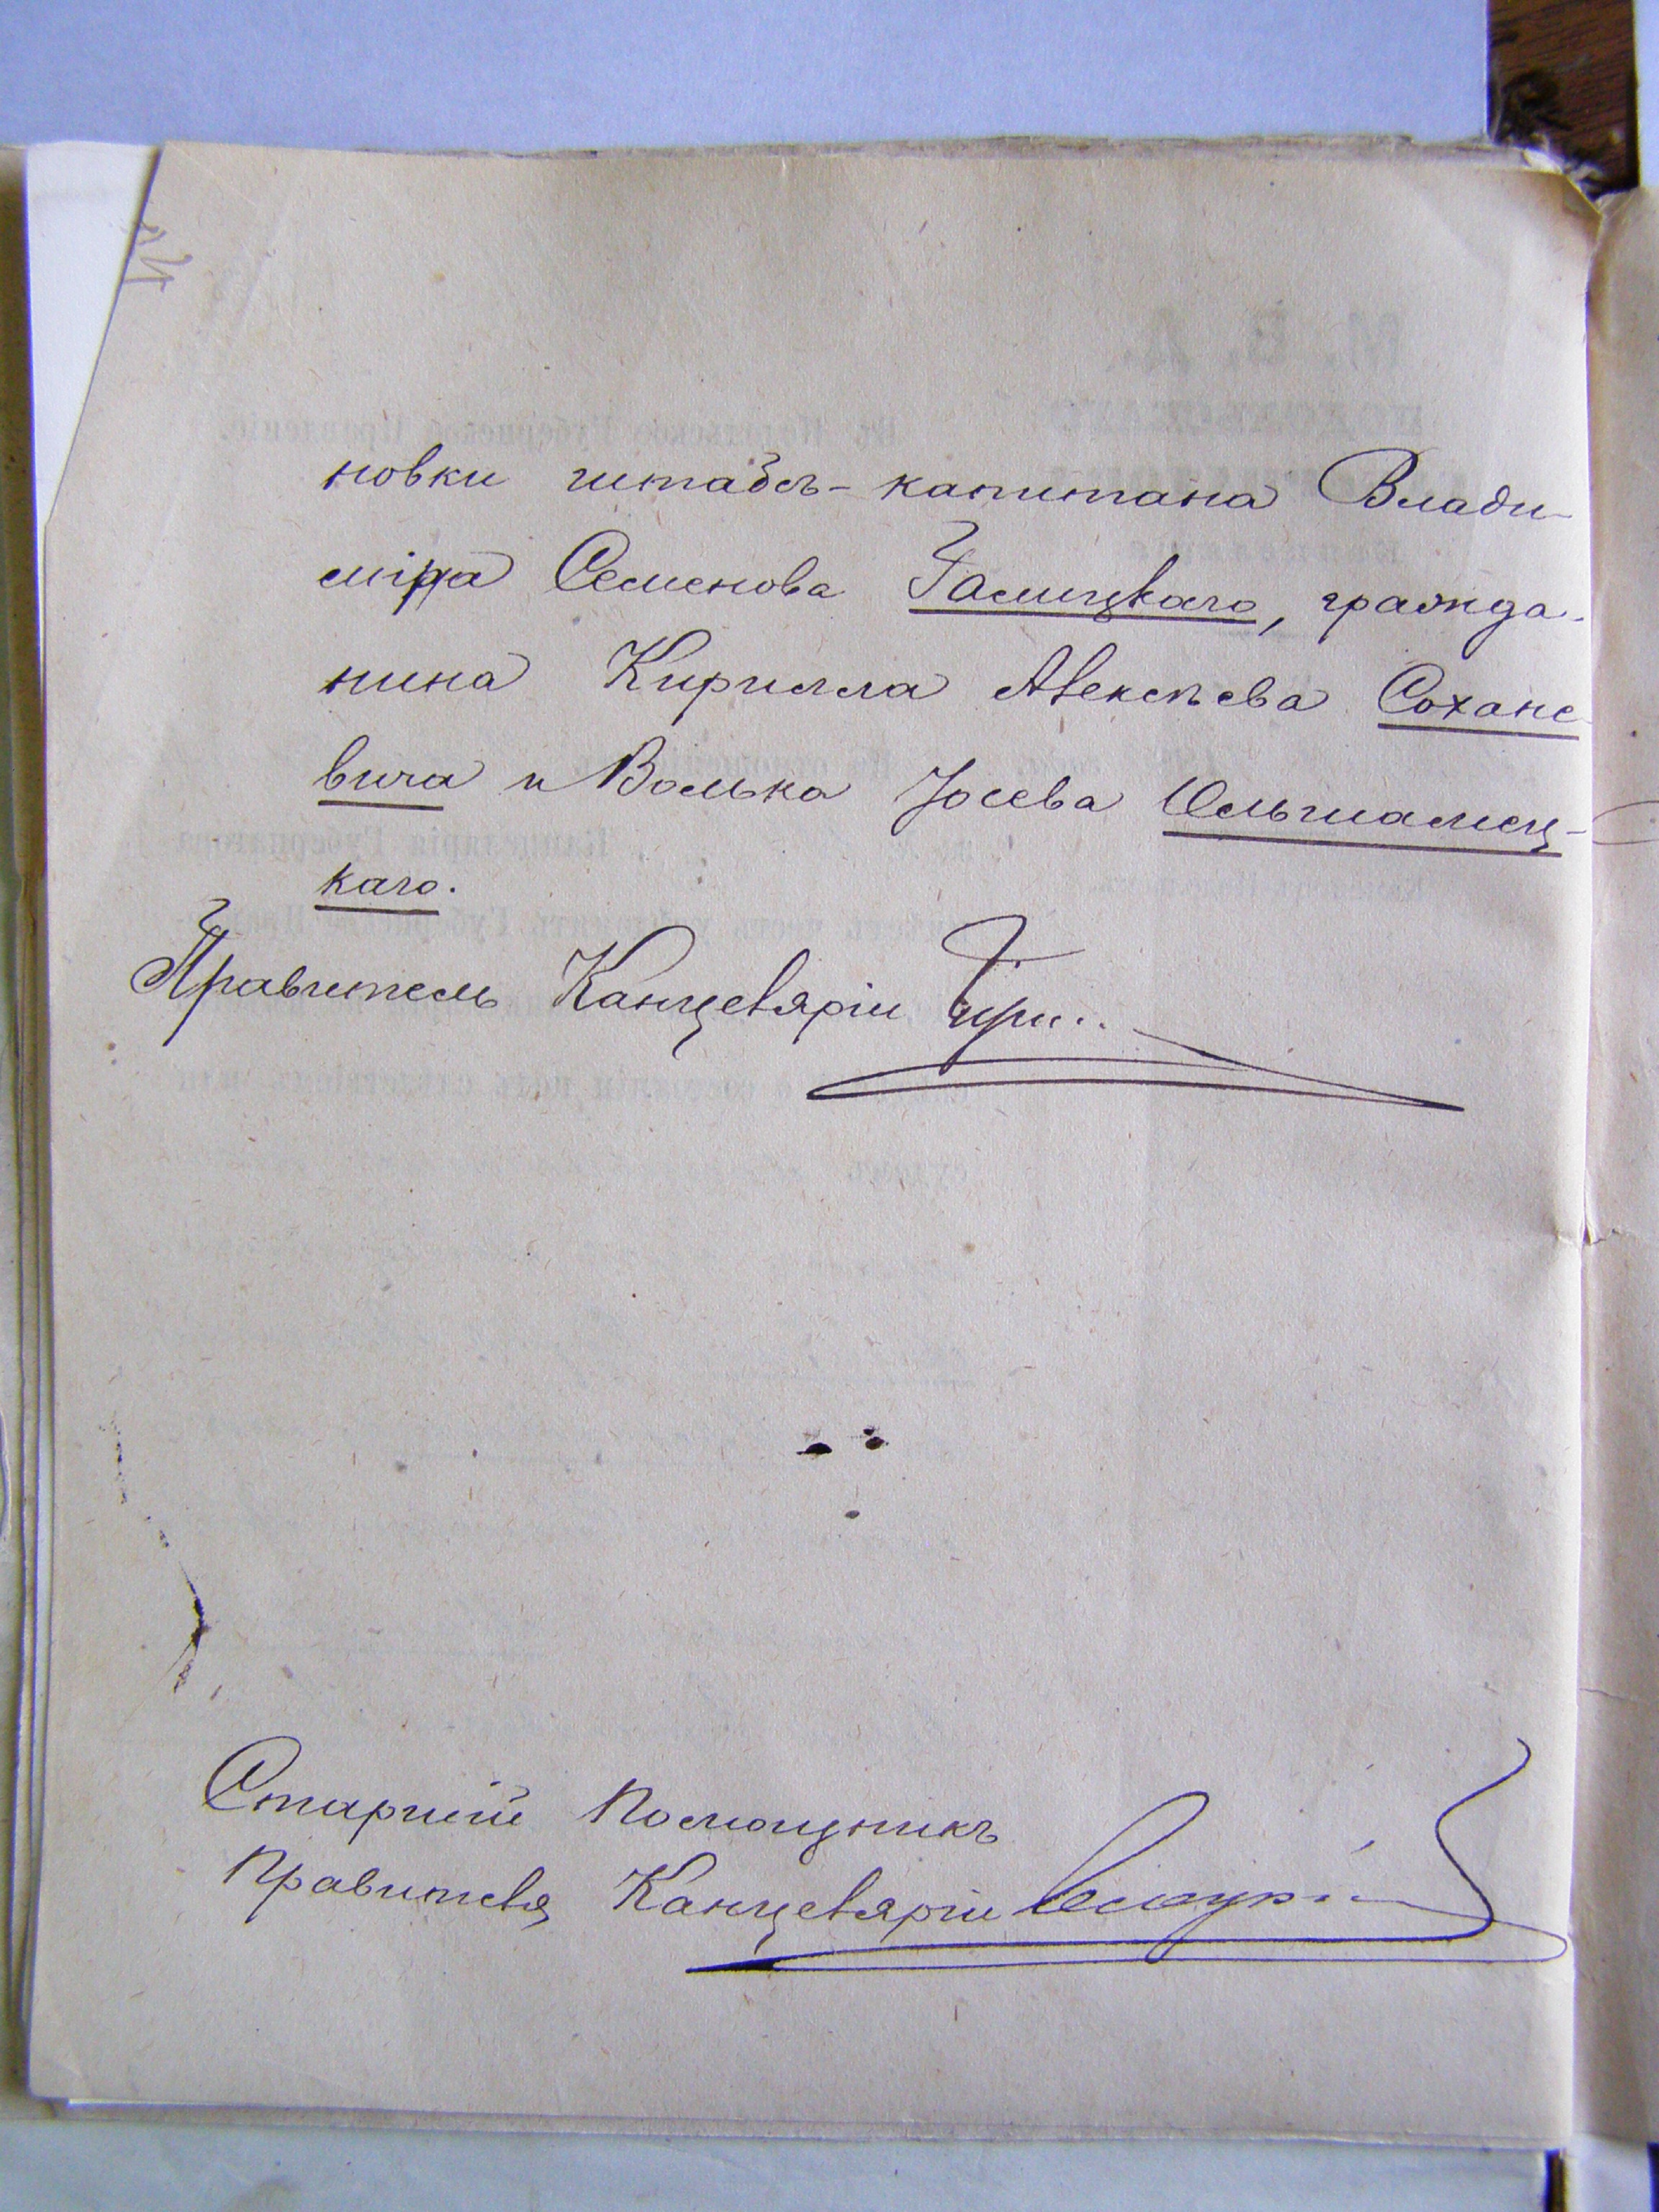 новки штабсъ-капитана Влади-
міра Семенова Галицкаго, гражда-
нина Кирилла Алексѣева Сохане
вича и Волька Іосева Ольшамец-
каго.
Правитель Канцеляріи
Старшій Помощникъ
Правителя Канцеляріи